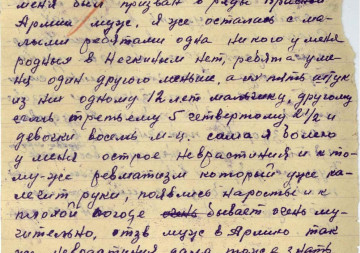 меня был призван в ряды Красной
Армии муж, Я же осталась с ма-
лыми ребятами одна никого у меня
родных в нет, ребята у ме-
ня один другого меньше, а их пять штук
из них одному 12 лет мальчику, другому
семь третьему 5 четвертому 2 1/2 и
девочки восемь м-ц. сама я болею
у меня острое неврастиния и к то-
му-же ревматизм который уже ка-
лечит руки, появлись наросты и к
плохой погоде бывает очень му-
чительно, отзв муж в Армию так
же дала тоже знать